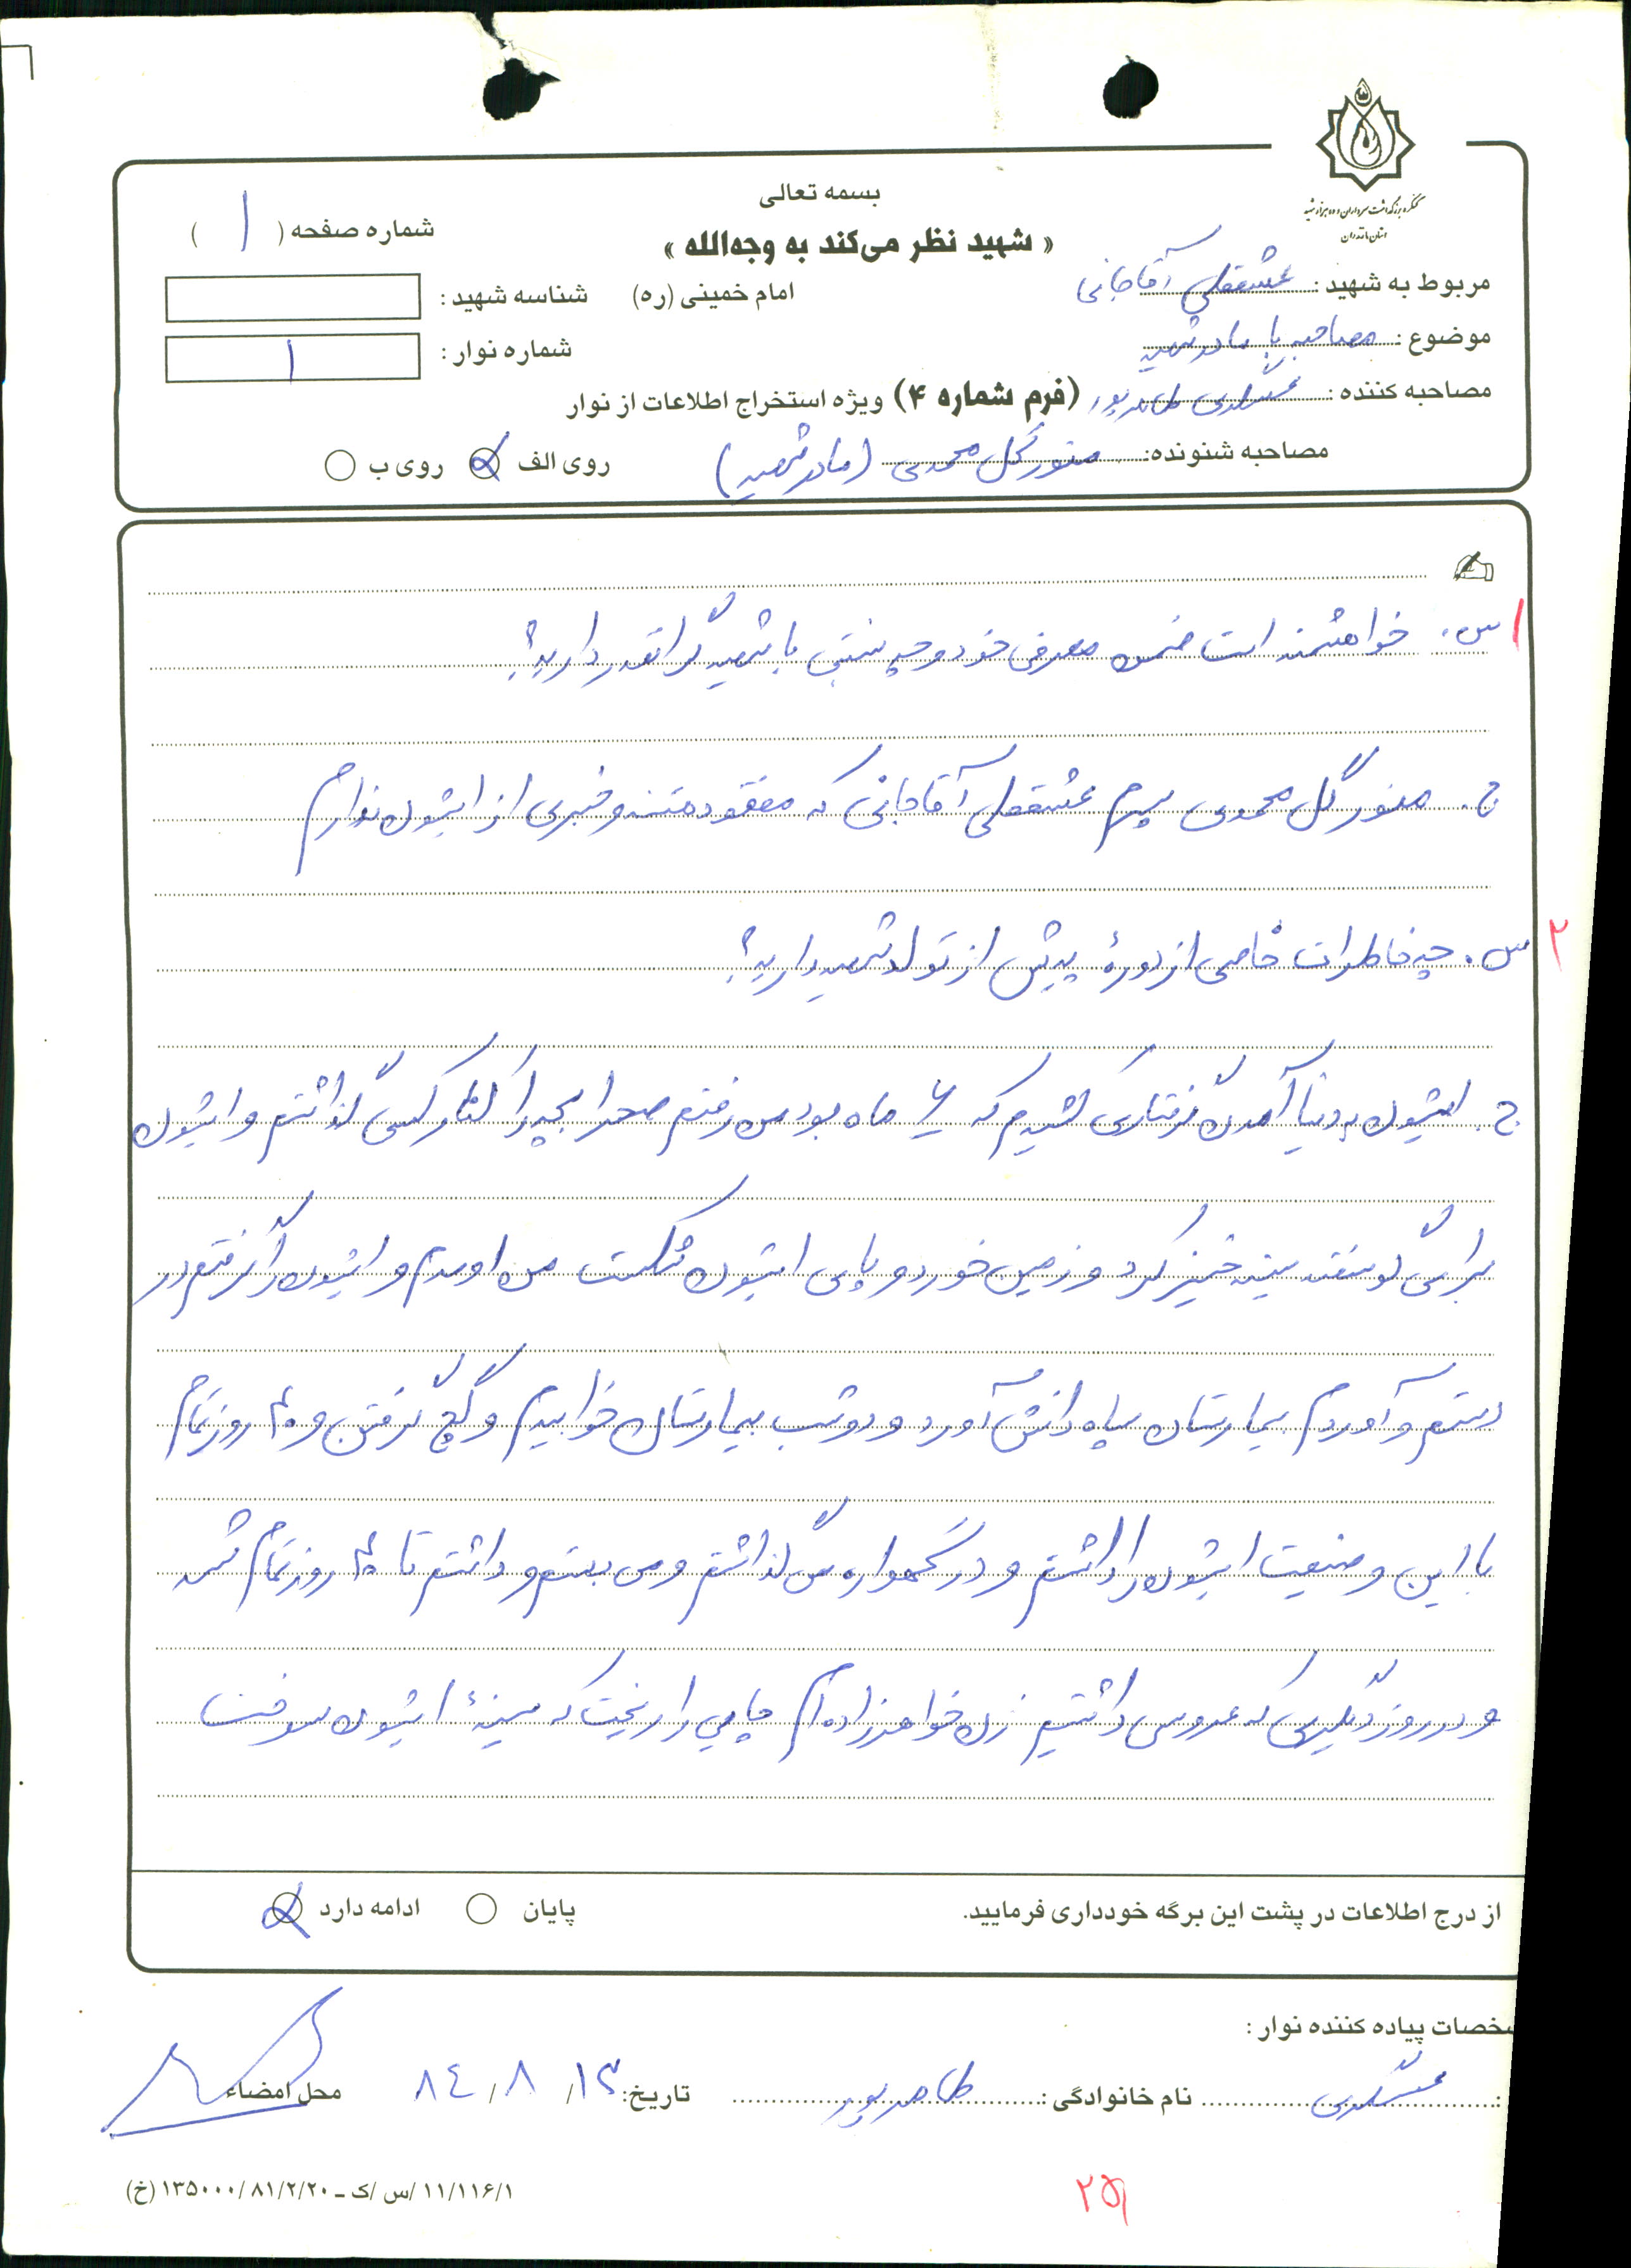 کنگره بزرگداشت سرداران و ده هزار شهید
استان مازندران
بسمه تعالی
« شهید نظر می‌کند به وجه‌الله »
شماره صفحه ( ۱ )
مربوط به شهید : عشقعلی آقاجانی
امام خمینی (ره)
شناسه شهید :
موضوع : مصاحبه با مادر شهید
شماره نوار : ۱
مصاحبه کننده : عسگری طاهرپور (فرم شماره ۴) ویژه استخراج اطلاعات از نوار
مصاحبه شنونده: منور گل محمدی (مادر شهید)
روی الف روی ب
۱ س. خواهشمند است ضمن معرفی خود و چه نسبتی با شهید گرانقدر دارید؟
ج. منور گل محمدی پسرم عشقعلی آقاجانی که مفقود هستند و خبری از ایشون ندارم
۲ س. چه خاطرات خاصی از دورهٔ پیش از تولد شهید دارید؟
ج. ایشون به دنیا آمدن گرفتاری کشیدم که ۶ ماه بود من رفتم صحرا بچه را کنار کسی گذاشتم و ایشون
برای گوسفند سینه خیز کرد و زمین خورد و پای ایشون شکست من اومدم و ایشون را گرفتم در
دستم و آوردم بیمارستان سپاه دانش آورد و دو شب بیمارستان خوابیدم و گچ گرفتن و ۴۰ روز تمام
با این وضعیت ایشون را داشتم و در گهواره می گذاشتم و می بستم و داشتم تا ۴۰ روز تمام شد
و در روز دیگری که عروسی داشتیم زن خواهرزاده‌ام چایی را ریخت که سینهٔ ایشون سوخت
از درج اطلاعات در پشت این برگه خودداری فرمایید.
پایان ادامه دارد
خصات پیاده کننده نوار :
: عسگری نام خانوادگی : طاهرپور تاریخ: ۱۳/ ۸ / ۸۴ محل امضاء
۱۱/۱۱۶/۱ /س /ک ـ ۱۳۵۰۰۰/۸۱/۲/۲۰ (خ)